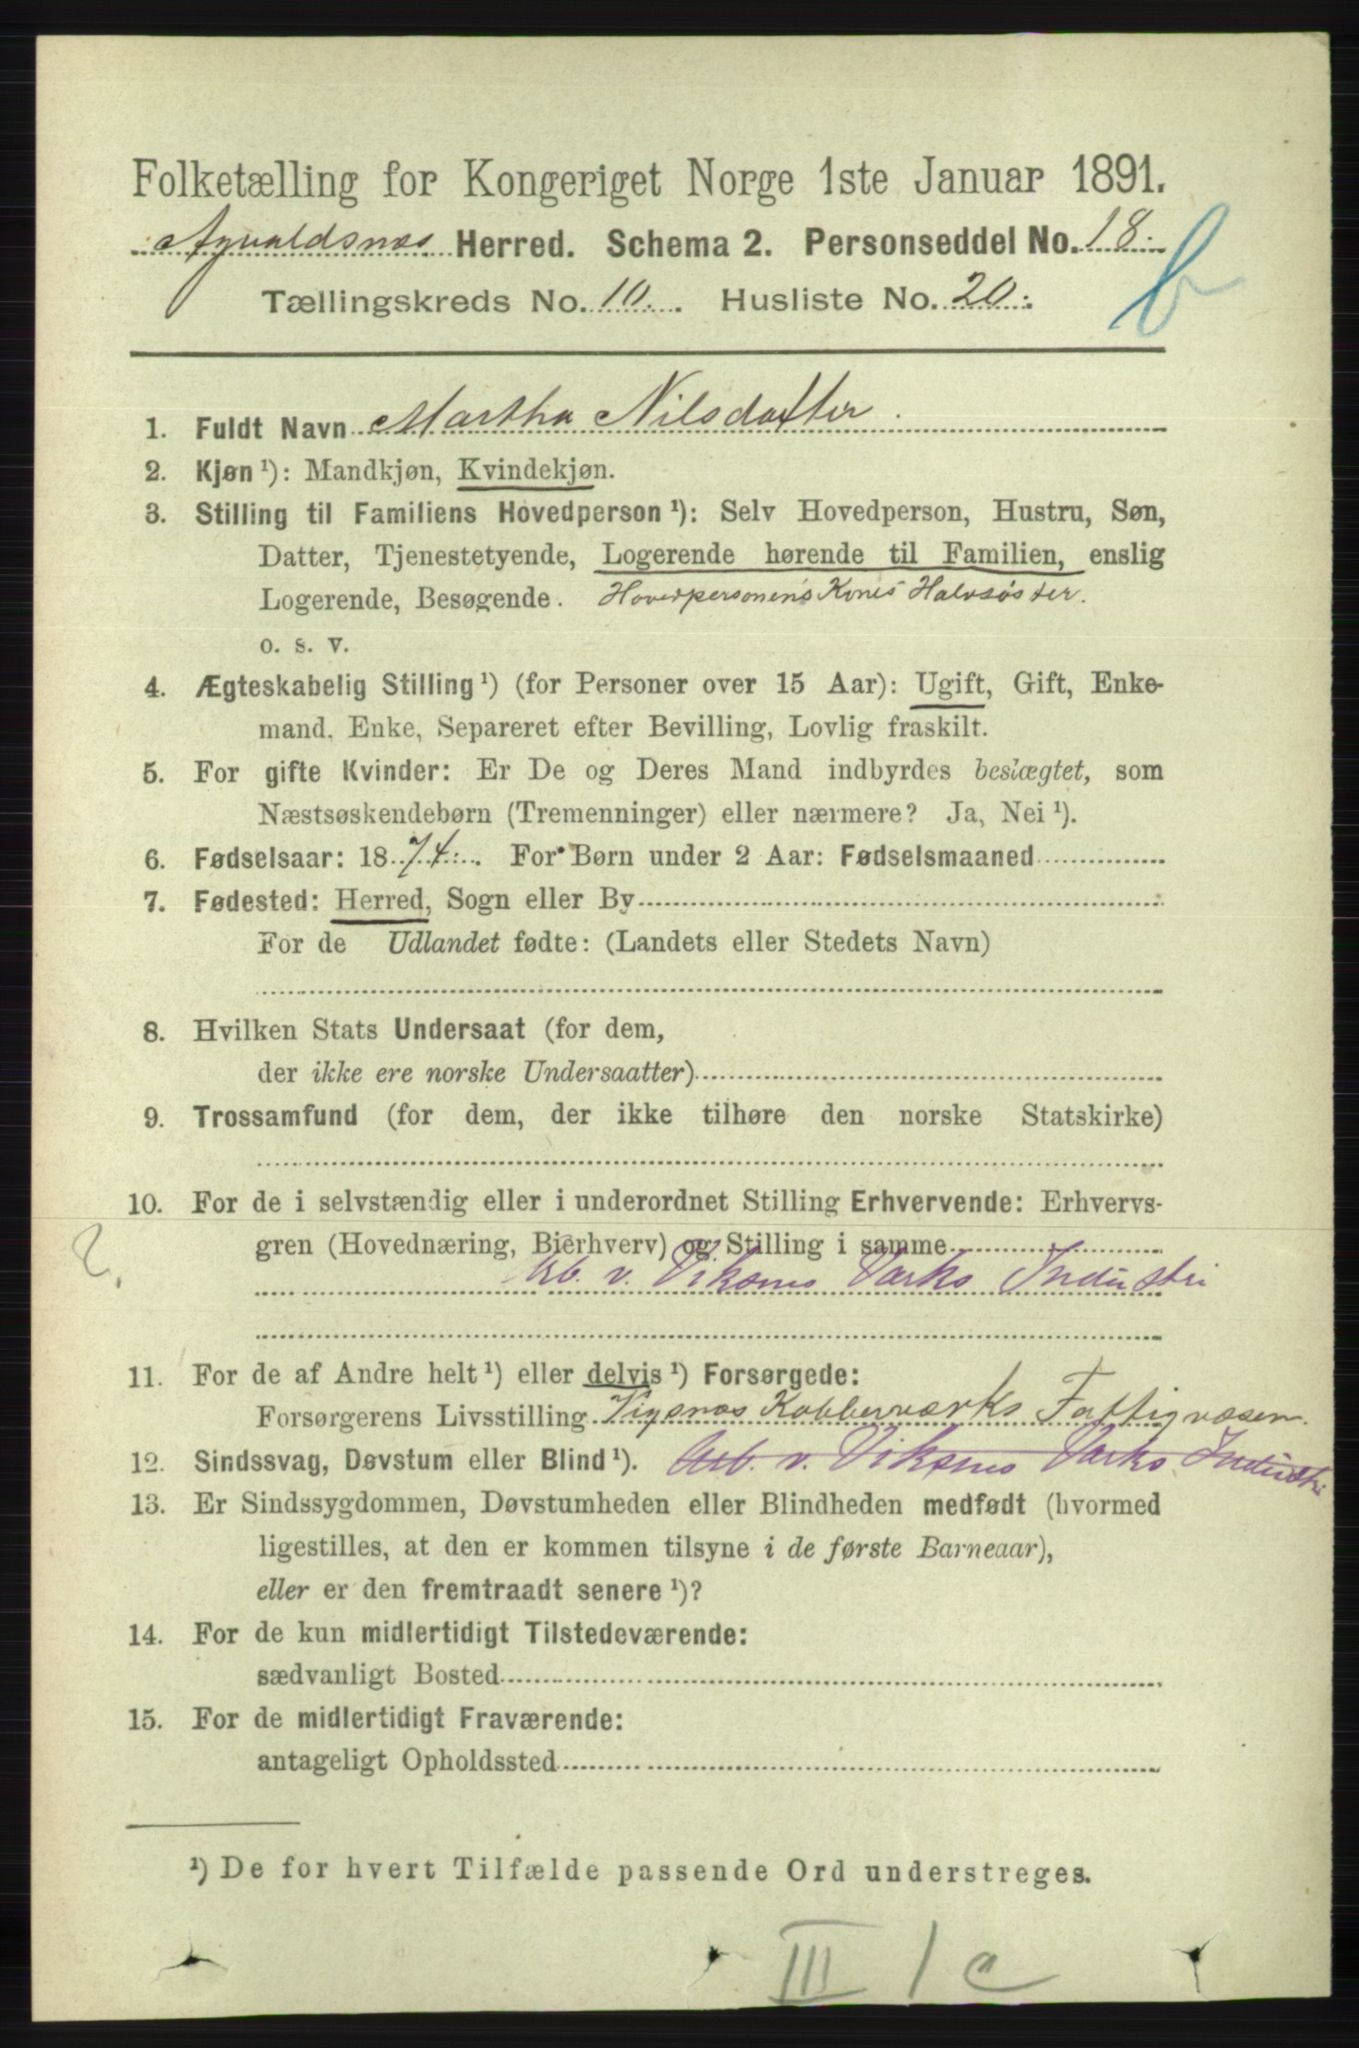 Folketælling for Kongeriget Norge 1ste Januar 1891.
Agvaldsnæs Herred. Schema 2. Personseddel No. 18.
b
Tællingskreds No. 10. Husliste No. 20.
1. Fuldt Navn Martha Nilsdatter.
2. Kjøn ¹): Mandkjøn, Kvindekjøn.
3. Stilling til Familiens Hovedperson ¹): Selv Hovedperson, Hustru, Søn,
Datter, Tjenestetyende, Logerende hørende til Familien, enslig
Logerende, Besøgende. Hovedpersonens Kones Halvsøster.
o. s. v.
4. Ægteskabelig Stilling ¹) (for Personer over 15 Aar): Ugift, Gift, Enke-
mand, Enke, Separeret efter Bevilling, Lovlig fraskilt.
5. For gifte Kvinder: Er De og Deres Mand indbyrdes beslægtet, som
Næstsøskendebørn (Tremenninger) eller nærmere? Ja, Nei ¹).
6. Fødselsaar: 1874. For Børn under 2 Aar: Fødselsmaaned
7. Fødested: Herred, Sogn eller By
For de Udlandet fødte: (Landets eller Stedets Navn)
8. Hvilken Stats Undersaat (for dem,
der ikke ere norske Undersaatter)
9. Trossamfund (for dem, der ikke tilhøre den norske Statskirke)
10. For de i selvstændig eller i underordnet Stilling Erhvervende: Erhvervs-
gren (Hovednæring, Bierhverv) og Stilling i samme
?. Arb. v. Viksnes Værks Industri
11. For de af Andre helt ¹) eller delvis ¹) Forsørgede:
Forsørgerens Livsstilling Vigsnæs Kobberværks Fattigvæsen.
12. Sindssvag, Døvstum eller Blind ¹). Arb. v. Viksnes Værks Industri
13. Er Sindssygdommen, Døvstumheden eller Blindheden medfødt (hvormed
ligestilles, at den er kommen tilsyne i de første Barneaar),
eller er den fremtraadt senere ¹)?
14. For de kun midlertidigt Tilstedeværende:
sædvanligt Bosted
15. For de midlertidigt Fraværende:
antageligt Opholdssted
¹) De for hvert Tilfælde passende Ord understreges.
III 1 c